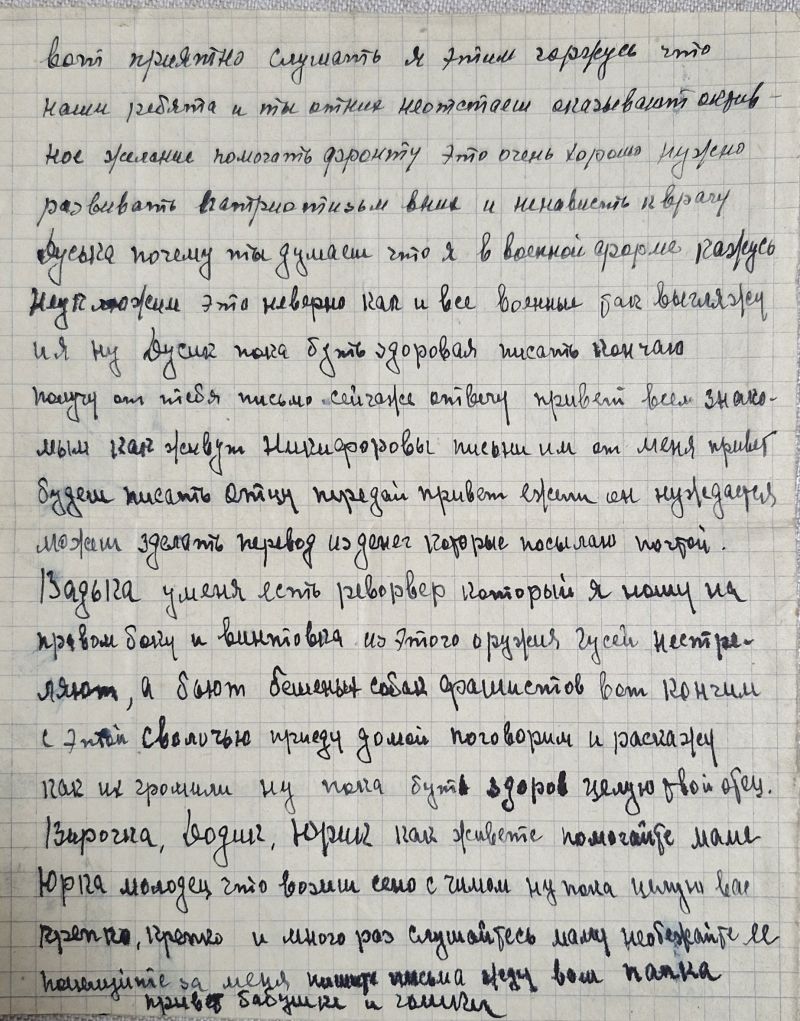 вот приятно слушать я этим горжусь что
наши ребята и ты отних неотстаеш оказывают актив-
ное желание помогать фронту это очень хорошо нужно
развивать патриотизьм вних и ненависть к врагу
Дуська почему ты думаеш что я в военной форме кажусь
неуклюжим это неверно как и все военные так выгляжу
и я ну Дусик пока буть здоровая писать кончаю
получу от тебя письмо сейчаже отвечу привет всем знако-
мым как живут Никифоровы пиши им от меня привет
будеш писать отцу передай привет ежели он нуждается
можеш зделать перевод из денег которые посылаю почтой.
Вадька уменя есть реворвер который я ношу на
правом боку и винтовка из этого оружия гусей нестре-
ляют, а бьют бешеных собак фашистов вот кончим
с этой сволочью приеду домой поговорим и раскажу
как их громили ну пока буть здоров целую твой отец.
Вирочка, Додик, Юрик как живете помогайте маме
Юрка молодец что возиш сено с ну пока целую вас
крепко, крепко и много раз слушайтесь маму необежайте ее
поцелуйте за меня пишите письма жду ваш папка
привет бабушке и